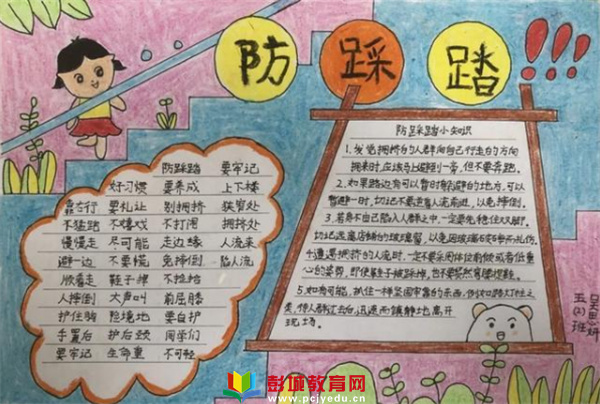 防踩踏!!!
防踩踏 要牢记
好习惯 要养成 上下楼
靠右行 要礼让 别拥挤 狭窄处
不猛跑 不嬉戏 不打闹 拥挤处
慢慢走 尽可能 走边缘 人流来
避一边 不要慌 免摔倒 陷人流
顺着走 鞋子掉 不捡拾
人摔倒 大声叫 前屈膝
护住胸 险境地 要自护
手置后 护后颈 同学们
要牢记 生命重 不可轻
防踩踏小知识
1、发觉拥挤的人群向自己行走的方向
拥来时,应该马上避到一旁,但不要奔跑。
2、如果路边有可以暂时躲避的地方,可以
暂避一时,切记不要逆着人流前进,以免摔倒。
3、若身不由己陷入人群之中,一定要先稳住双脚。
切记远离店铺的玻璃窗,以免因玻璃破碎而被伤。
4、遭遇拥挤的人流时,一定不要采用体位前倾或者低重
心的姿势,即使鞋子被踩掉,也不要贸然弯腰提鞋。
5、如有可能,抓住一样坚固牢靠的东西,例如路灯柱之
类,待人群过去后,迅速而镇静地离开
现场。
五(2)班
吴思妍
彭城教育网
www.pcjyedu.cn